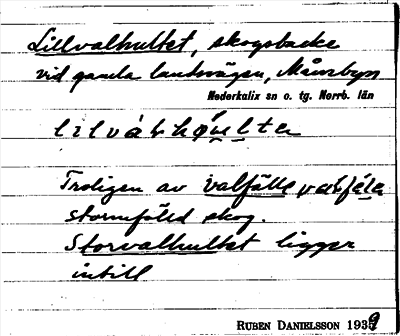 Lillvalhultet, skogsbacke
vid gamla landsvägen, Månsbyn
Nederkalix sn o. tg. Norrb. län
Troligen av valfälle
stormfälld skog.
Storvalhultet ligger
intill
RUBEN DANIELSSON 1939